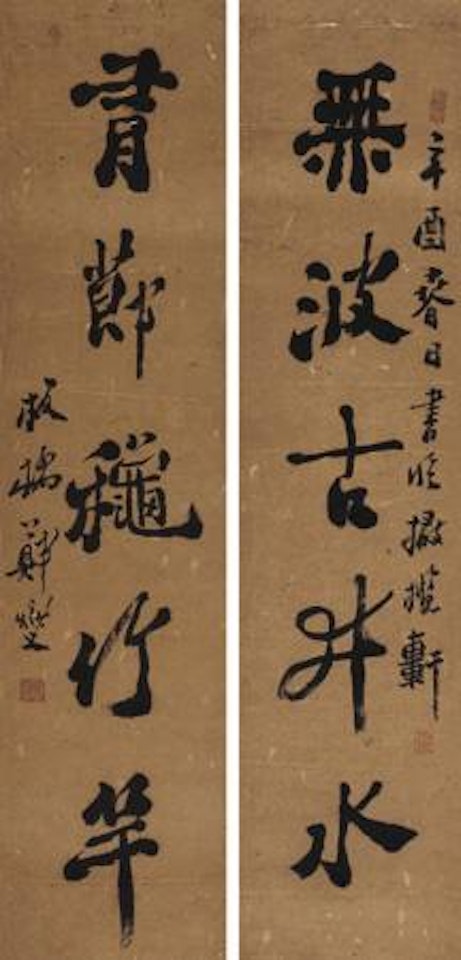 辛酉春日書於攬軒
無波古井水
有莭穐竹竿
板橋鄭燮